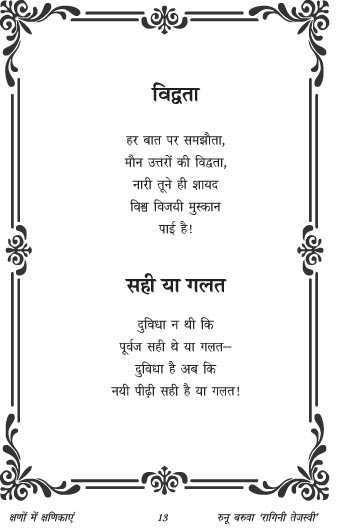 विद्वता
हर बात पर समझौता,
मौन उत्तरों की विद्वता,
नारी तूने ही शायद
विश्व विजयी मुस्कान
पाई है!
सही या गलत
दुविधा न थी कि
पूर्वज सही थे या गलत--
दुविधा है अब कि
नयी पीढ़ी सही है या गलत!
क्षणों में क्षणिकाएं 13 रुनू बरुवा ‘रागिनी तेजस्वी’